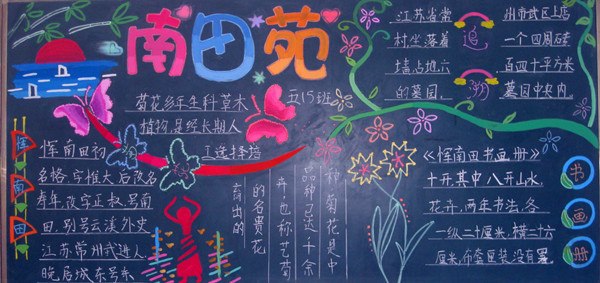 南田苑
江苏省常
州市武区上店
村坐落着
追
一个四周砖
墙占地六
百四十平方米
的墓园,
溯
墓园中央内.
菊花多年生科草木
五15班
植物,是经长期人
工选择培
育出的
的名贵花
卉,也称艺菊
品种已达千余
种菊花是中
恽南田
恽南田初
名格,字惟大后改名
寿年,改字正叔,号南
田,别号云溪外史
江苏常州武进人
晚居城东号东
《恽南田书画册》
十开其中八开山水,
花卉,两年书法,各
一纵二十厘米,横二十六
厘米,布套匣装,没有署.
书
画
册